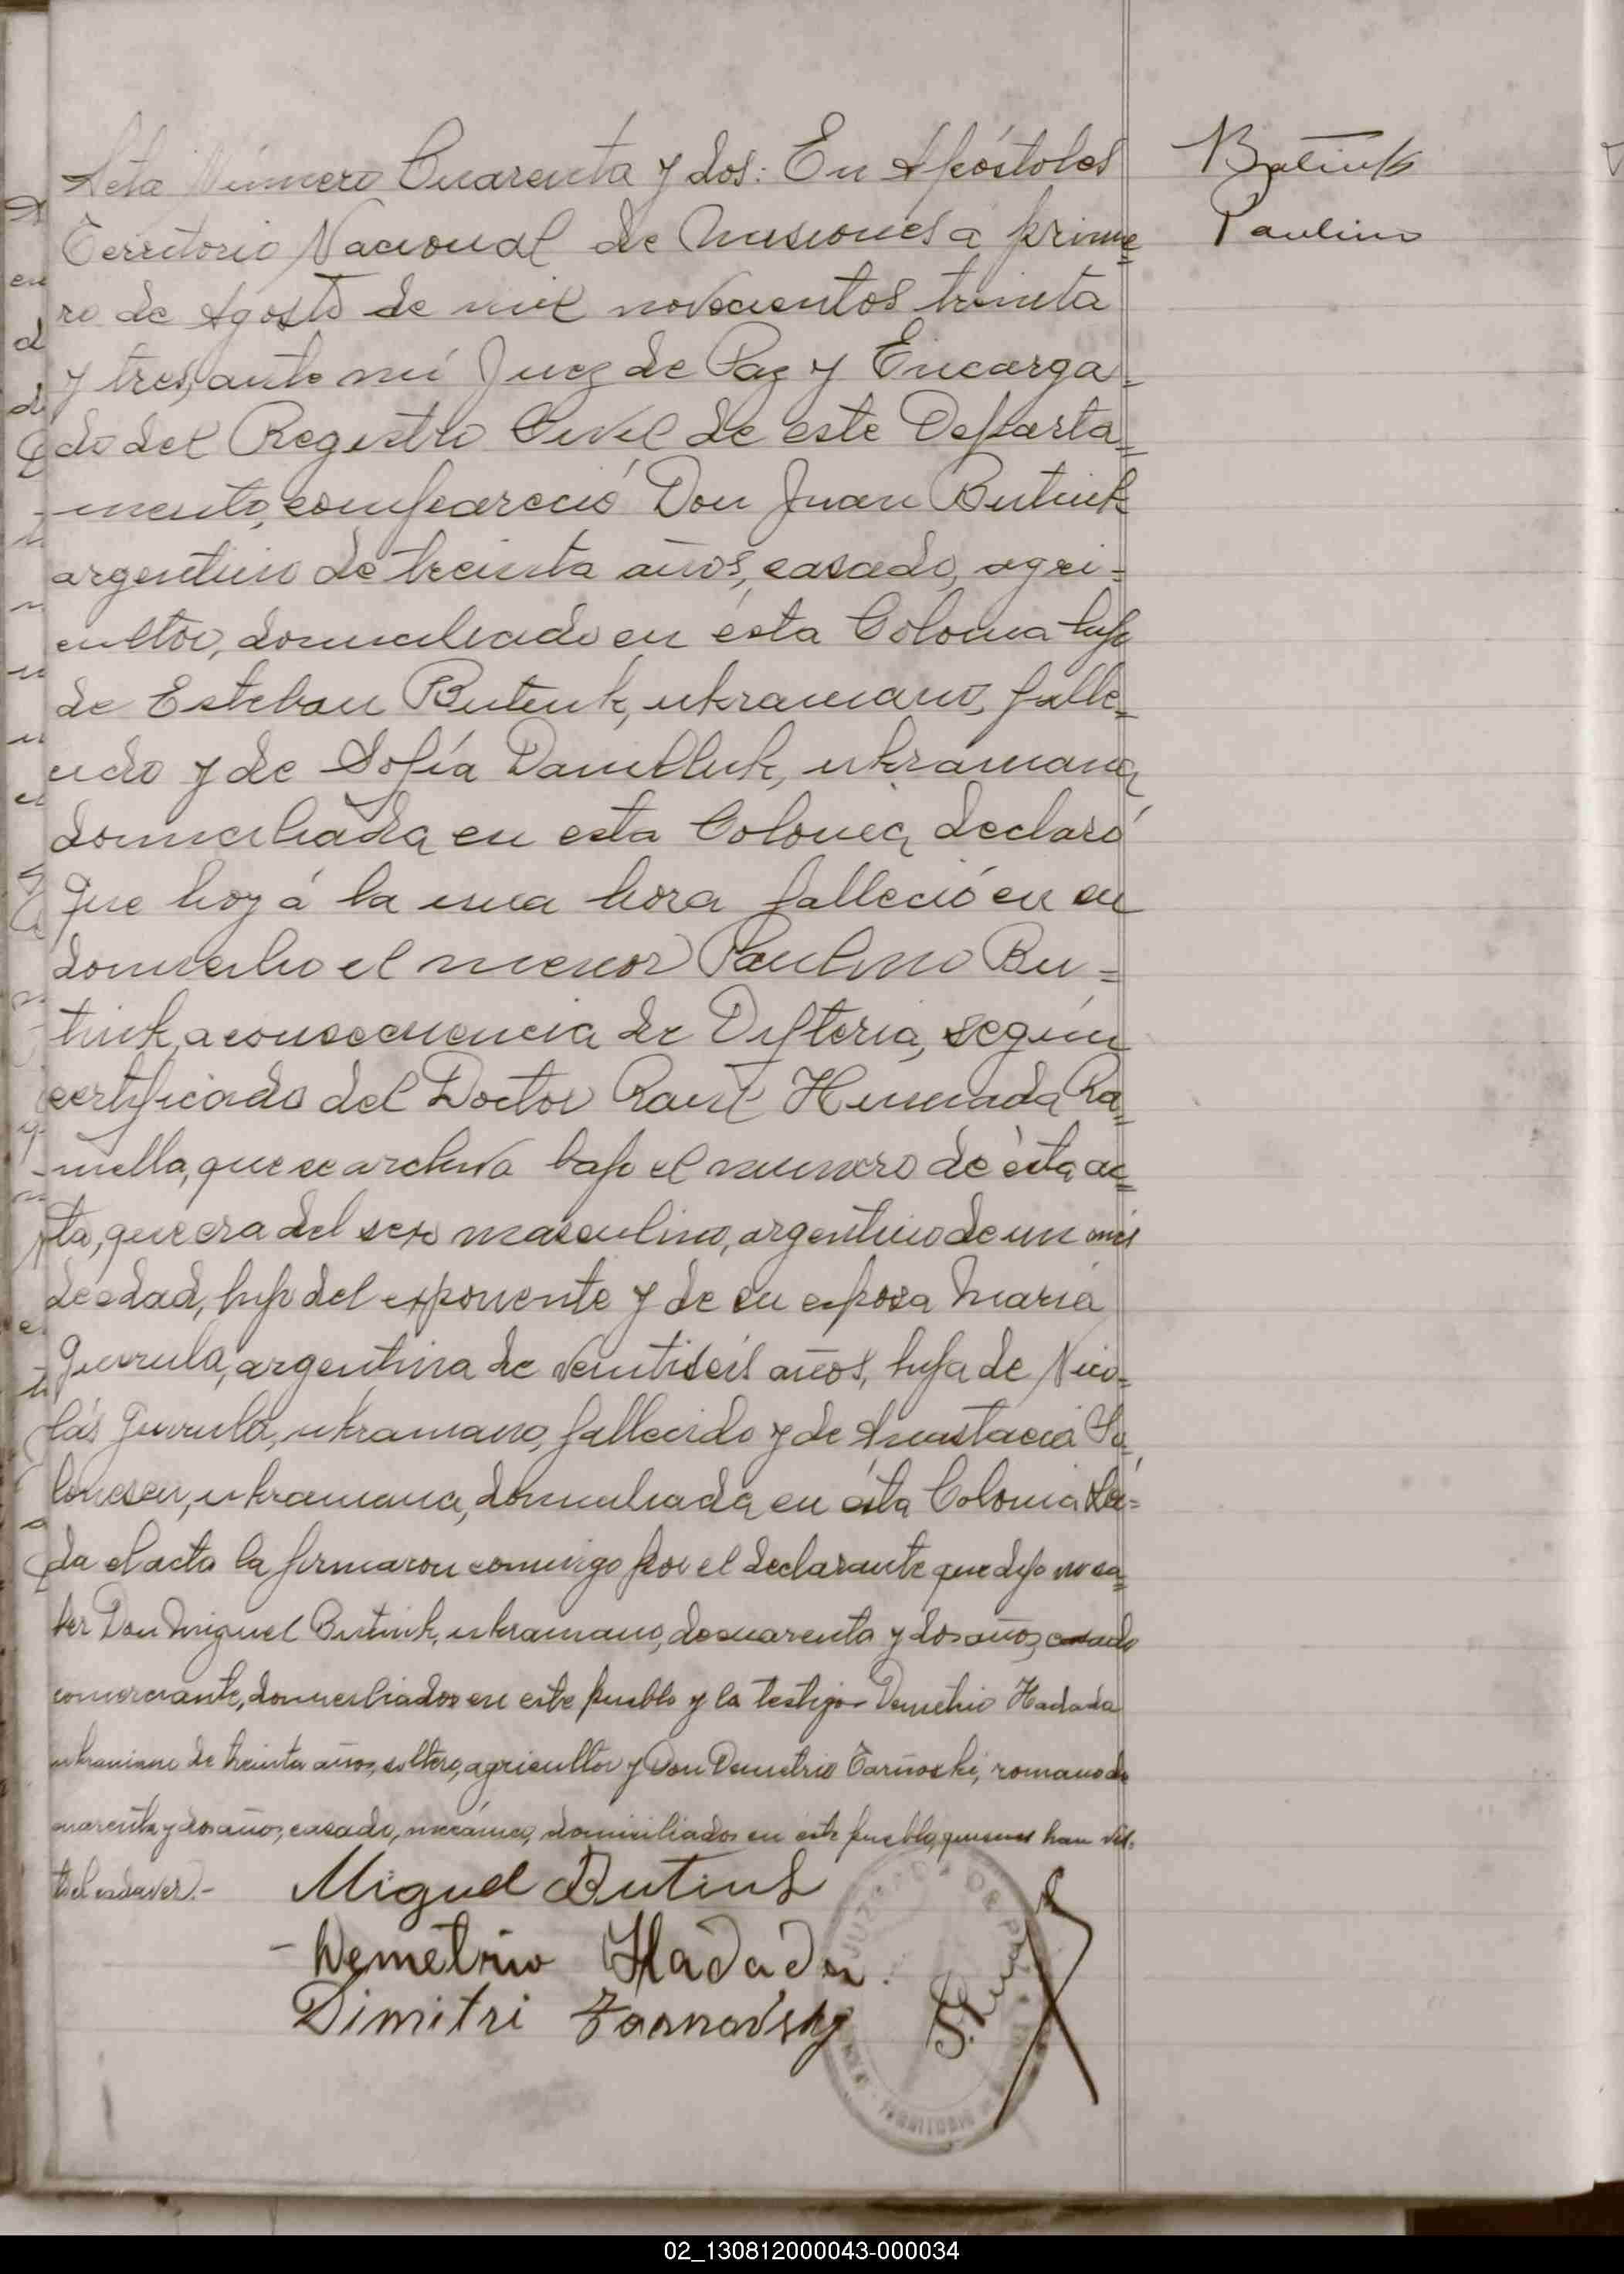 Acta Número Cuarenta y dos: En Apóstoles
Territorio Nacional de Misiones a prime=
ro de Agosto de mil novecientos treinta
y tres, ante mí Juez de Paz y Encarga=
do del Registro Civil de este Departa=
mento, compareció Don Juan Butiuk
argentino de treinta años, casado, agri=
cultor, domiciliado en ésta Colonia hijo
de Esteban Butiuk, ukraniano, falle=
cido y de Sofía Danilluk, ukraniana,
domiciliada en esta Colonia, declaró
que hoy á la una hora falleció en su
domicilio el menor Paulino Bu=
tiuk, a consecuencia de Difteria, según
certificado del Doctor Raul Humada Ra=
mella, que se archiva bajo el numero de ésta ac=
ta, que era del sexo masculino, argentino de un mes
de edad, hijo del exponente y de su esposa María
argentina de veintiseis años, hija de Nico=
lás ukraniano, fallecido y de Anastacia
ukraniana, domiciliada en ésta Colonia Leí=
da el acta la firmaron conmigo por el declarante que dijo no sa=
ber Don Miguel Butiuk, ukraniano, de cuarenta y dos años, casado
comerciante, domiciliados en este pueblo y la testigos Demetrio Hadada
ukraniano de treinta años, soltero, agricultor y Don Demetrio Tarñoski, romano de
cuarenta y dos años, casado, mecánico, domiciliados en este pueblo, quienes han vis=
to el cadaver.-
Miguel Butiuk
- Demetrio Hadada.
Dimitri Zarnavsky
Batiuk
Paulino
JUZGADO DE PAZ
TERRITORIO
02_130812000043-000034